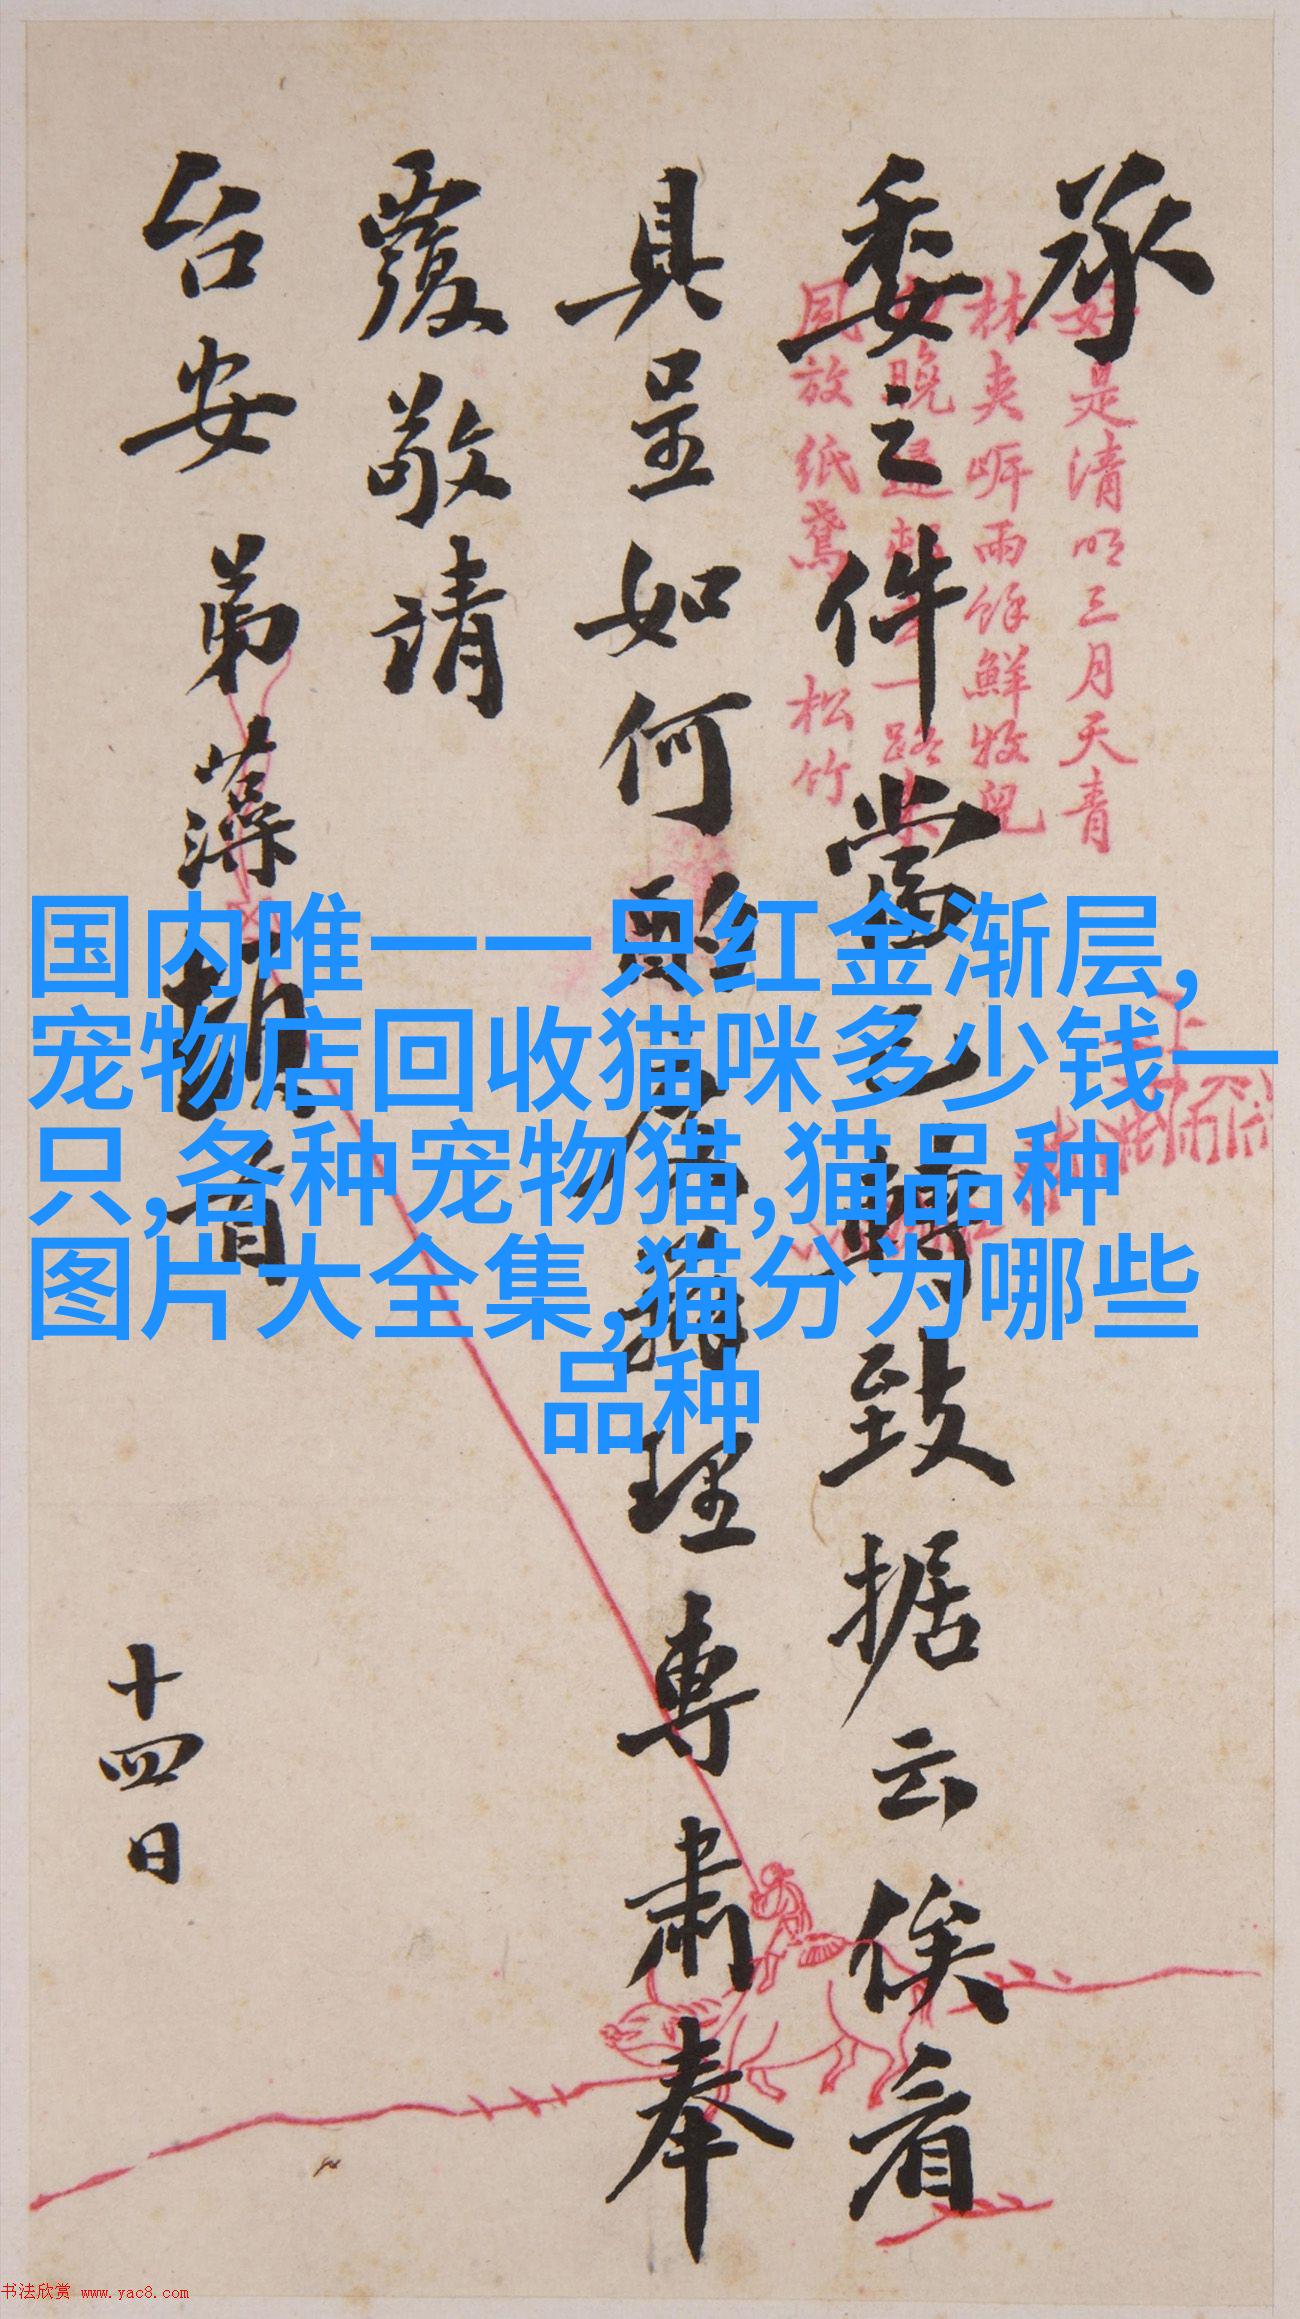 承
委之件當
轉致据云俟看
具呈如何
理専肅奉
覆敬請
台安 弟藻
首
十四日
好是清明三月天青
林夹
雨餘鮮牧兒
晚
一路
放纸鸢 松竹
国内唯一一只红金渐层,
宠物店回收猫咪多少钱一
只,各种宠物猫,猫品种
图片大全集,猫分为哪些
品种
书法欣赏 www.yac8.com